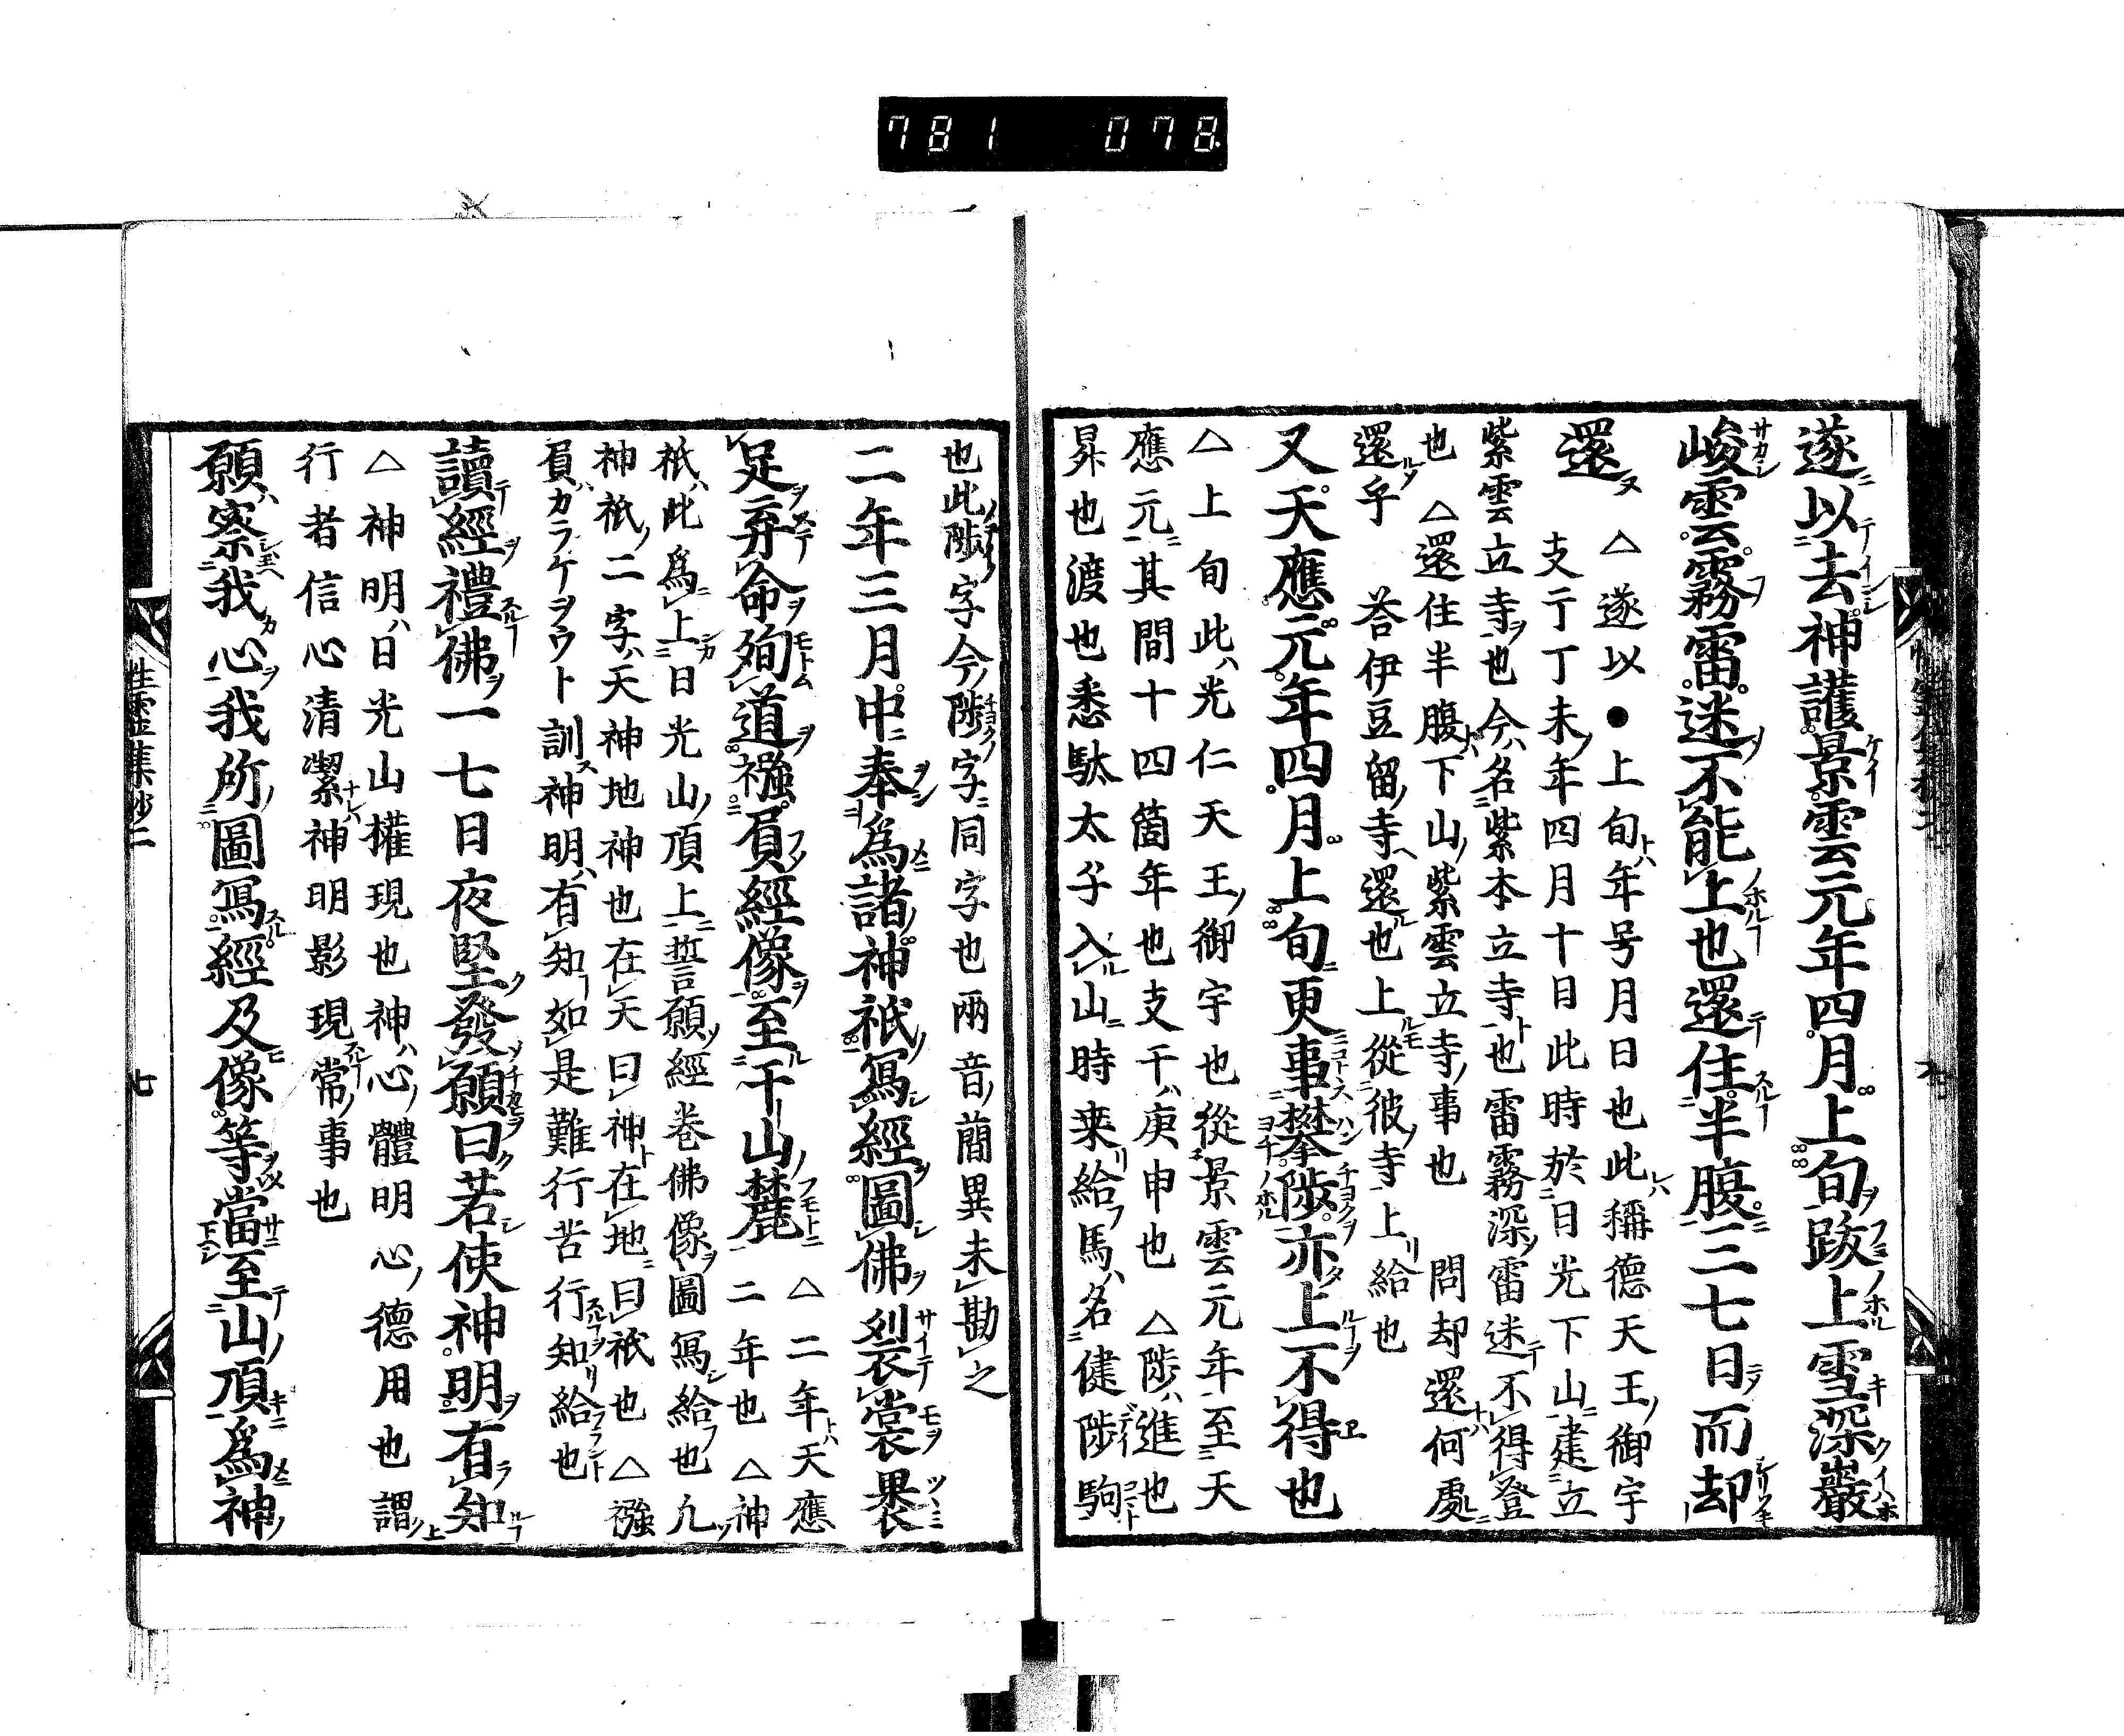 781 078
遂以去神護景雲元年四月上旬跋上雪深巖
峻雲霧雷迷不能上也還住半腹三七日而却
還
△遂以●上旬年号月日也此稱德天王御宇
支干丁未年四月十日此時於日光下山建立
紫雲立寺也今名紫本立寺也雷霧深雷迷不得登
也 △還住半腹下山紫雲立寺事也 問却還何處
還乎 荅伊豆留寺還也上從彼寺上給也
又天應元年四月上旬更事攀陟亦上不得也
△上旬此光仁天王御宇也從景雲元年至天
應元其間十四箇年也支干庚申也 △陟進也
昇也渡也悉馱太子入山時来給馬名健陟駒
也此陟字今陟字同字也兩音簡異未勘之
二年三月中奉爲諸神祇寫經圖佛裂裳裹
足弃命殉道襁負經像至于山麓
△二年天應
二年也 △神
祇此爲上日光山頂上誓願經卷佛像圖寫給也凡
神祇二字天神地神也在天曰神在地曰祇也 △襁
負カラケヲウト訓神明有知如是難行苦行知給也
讀經禮佛一七日夜堅發願曰若使神明有知
△神明日光山權現也神心體明心德用也謂
行者信心清潔神明影現常事也
願察我心我所圖寫經及像等當至山頂爲神
性靈集抄二 七